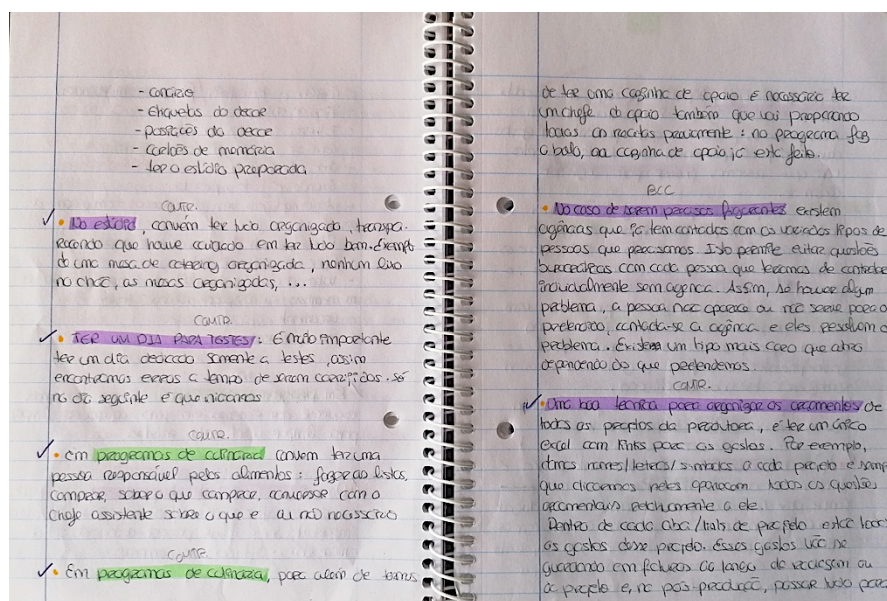 - Etiquetas do decor
- posições do decor
- cartões de memória
- ter o estúdio preparado
• No estúdio, convém ter tudo organizado, transpa-
recendo que houve cuidado em ter tudo bem. Exemplo
de uma mesa de catering organizada, nenhum lixo
no chão, as mesas organizadas, ...
• TER UM DIA PARA TESTES: É muito importante
ter um dia dedicado somente a testes, assim
encontramos erros a tempo de serem corrigidos. só
no dia seguinte é que iniciamos
• Em programas de culinária convém ter uma
pessoa responsável pelos alimentos: fazer as listas,
comprar, saber o que comprar, conversar com o
chefe assistente sobre o que é ou não necessário
• Em programas de culinária, para além de termos
de ter uma cozinha de apoio é necessário ter
um chefe de apoio também que vai preparando
todas as receitas previamente: no programa faz
o bolo, na cozinha de apoio já está feito.
BCC
• No caso de serem precisos figurantes existem
agências que já tem contactos com os variados tipos de
pessoas que precisamos. Isto permite evitar questões
burocráticas com cada pessoa que teríamos de contactar
individualmente sem agência. Assim, se houver algum
problema, a pessoa não aparece ou não serve para o
pretendido, contacta-se a agência e eles resolvem o
problema. Existem um tipo mais caro que outro
dependendo do que pretendemos.
• Uma boa técnica para organizar os orçamentos de
todos os projetos da produtora, é ter um único
Excel com links para os gastos. Por exemplo,
damos nomes/letras/símbolos a cada projeto e sempre
que clicarmos neles aparecem todas as questões
orçamentais relativamente a ele.
Dentro de cada aba/link de projeto estão todos
os gastos desse projeto. Esses gastos vão se
guardando em ficheiros ao longo da rodagem ou
do projeto e, na pós-produção, passar tudo para